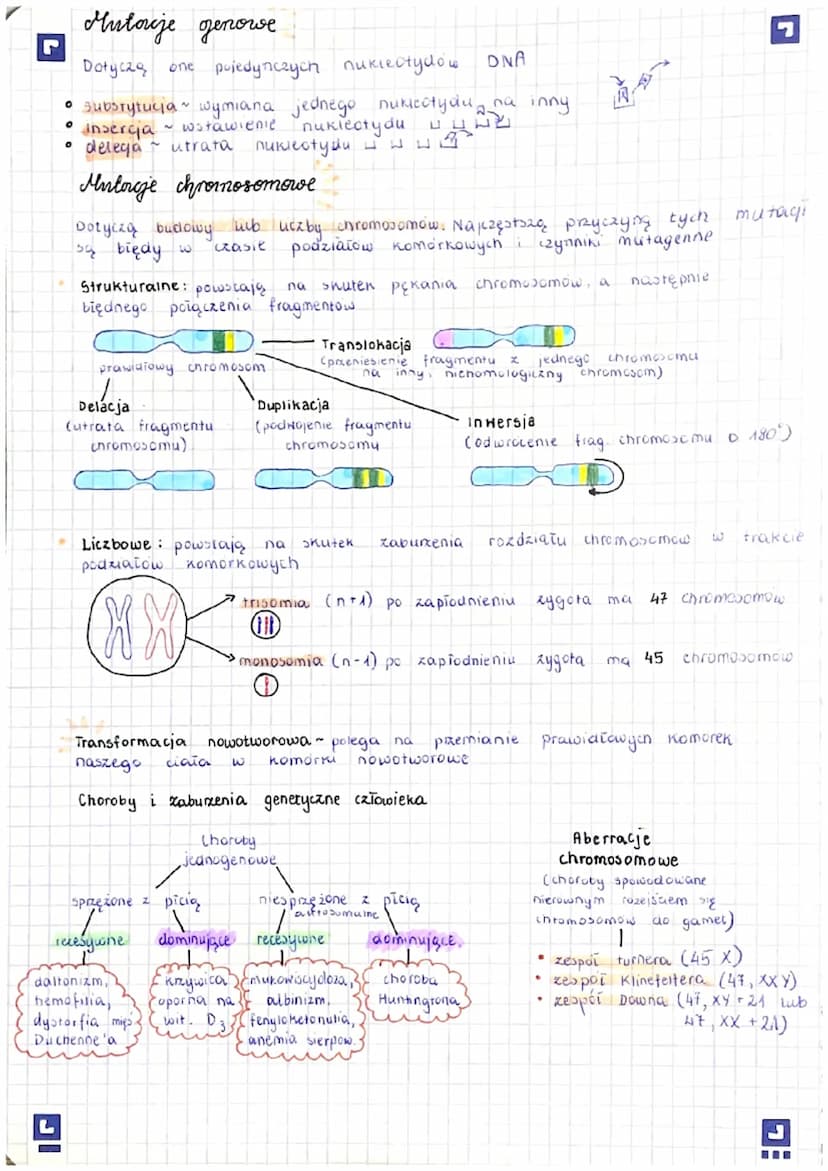 Mutacje genowe
Dotyczą one pojedynczych nukleotydów DNA
substytucja ~ wymiana jednego nukleotydu na inny
insercja ~ wstawienie nukleotydu
delecja ~ utrata nukleotydu
Mutacje chromosomowe
Dotyczą budowy lub liczby chromosomów. Najczęstszą przyczyną tych mutacji
są błędy w czasie podziałów komórkowych i czynniki mutagenne
Strukturalne: powstają na skutek pękania chromosomów, a następnie
błędnego połączenia fragmentów
prawidłowy chromosom
Translokacja
(przeniesienie fragmentu z jednego chromosomu
na inny, niehomologiczny chromosom)
Delacja
(utrata fragmentu
chromosomu)
Duplikacja
(podwojenie fragmentu
chromosomu
Inwersja
(odwrócenie frag. chromosomu o 180°)
Liczbowe: powstają na skutek zaburzenia rozdziału chromosomów w trakcie
podziałów komórkowych
trisomia (n+1) po zapłodnieniu zygota ma 47 chromosomów
monosomia (n-1) po zapłodnieniu zygota ma 45 chromosomów
Transformacja nowotworowa ~ polega na przemianie prawidławych komórek
naszego ciała w komórki nowotworowe
Choroby i zaburzenia genetyczne człowieka
Choroby
jednogenowe
sprzężone z płcią
niesprzężone z płcią
autosomalne
recesywne
dominujące
recesywne
dominujące
daltonizm,
hemofilia,
dystorfia mięś
Duchenne'a
krzywica
oporna na
wit. D3
mukowiscydoza,
albinizm,
fenyloketonulia,
anemia sierpow.
choroba
Huntingtona
Aberracje
chromosomowe
(choroby spowodowane
nierównym rozejściem się
chromosomów do gamet)
zespół turnera (45 X)
zespół Klinefeltera (47, XXY)
zespół Downa (47, XY+21 lub
47, XX +21)